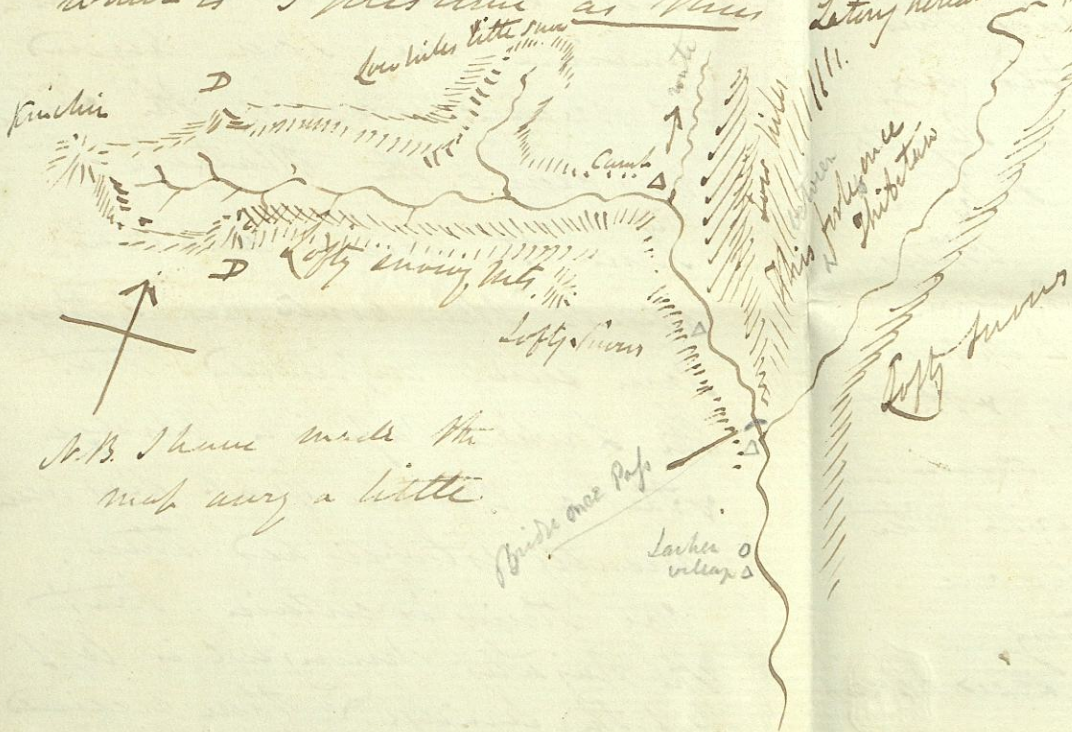 I presume as thus
Low hills little snow
D
Kinchin
route
Camp
Low hills
This fork once
Thibetan
Lofty snowy Mts
D
Lofty Snows
Lofty Snows
N.B. I have made the
map awry a little
Bridge once Pass
Lachen
village